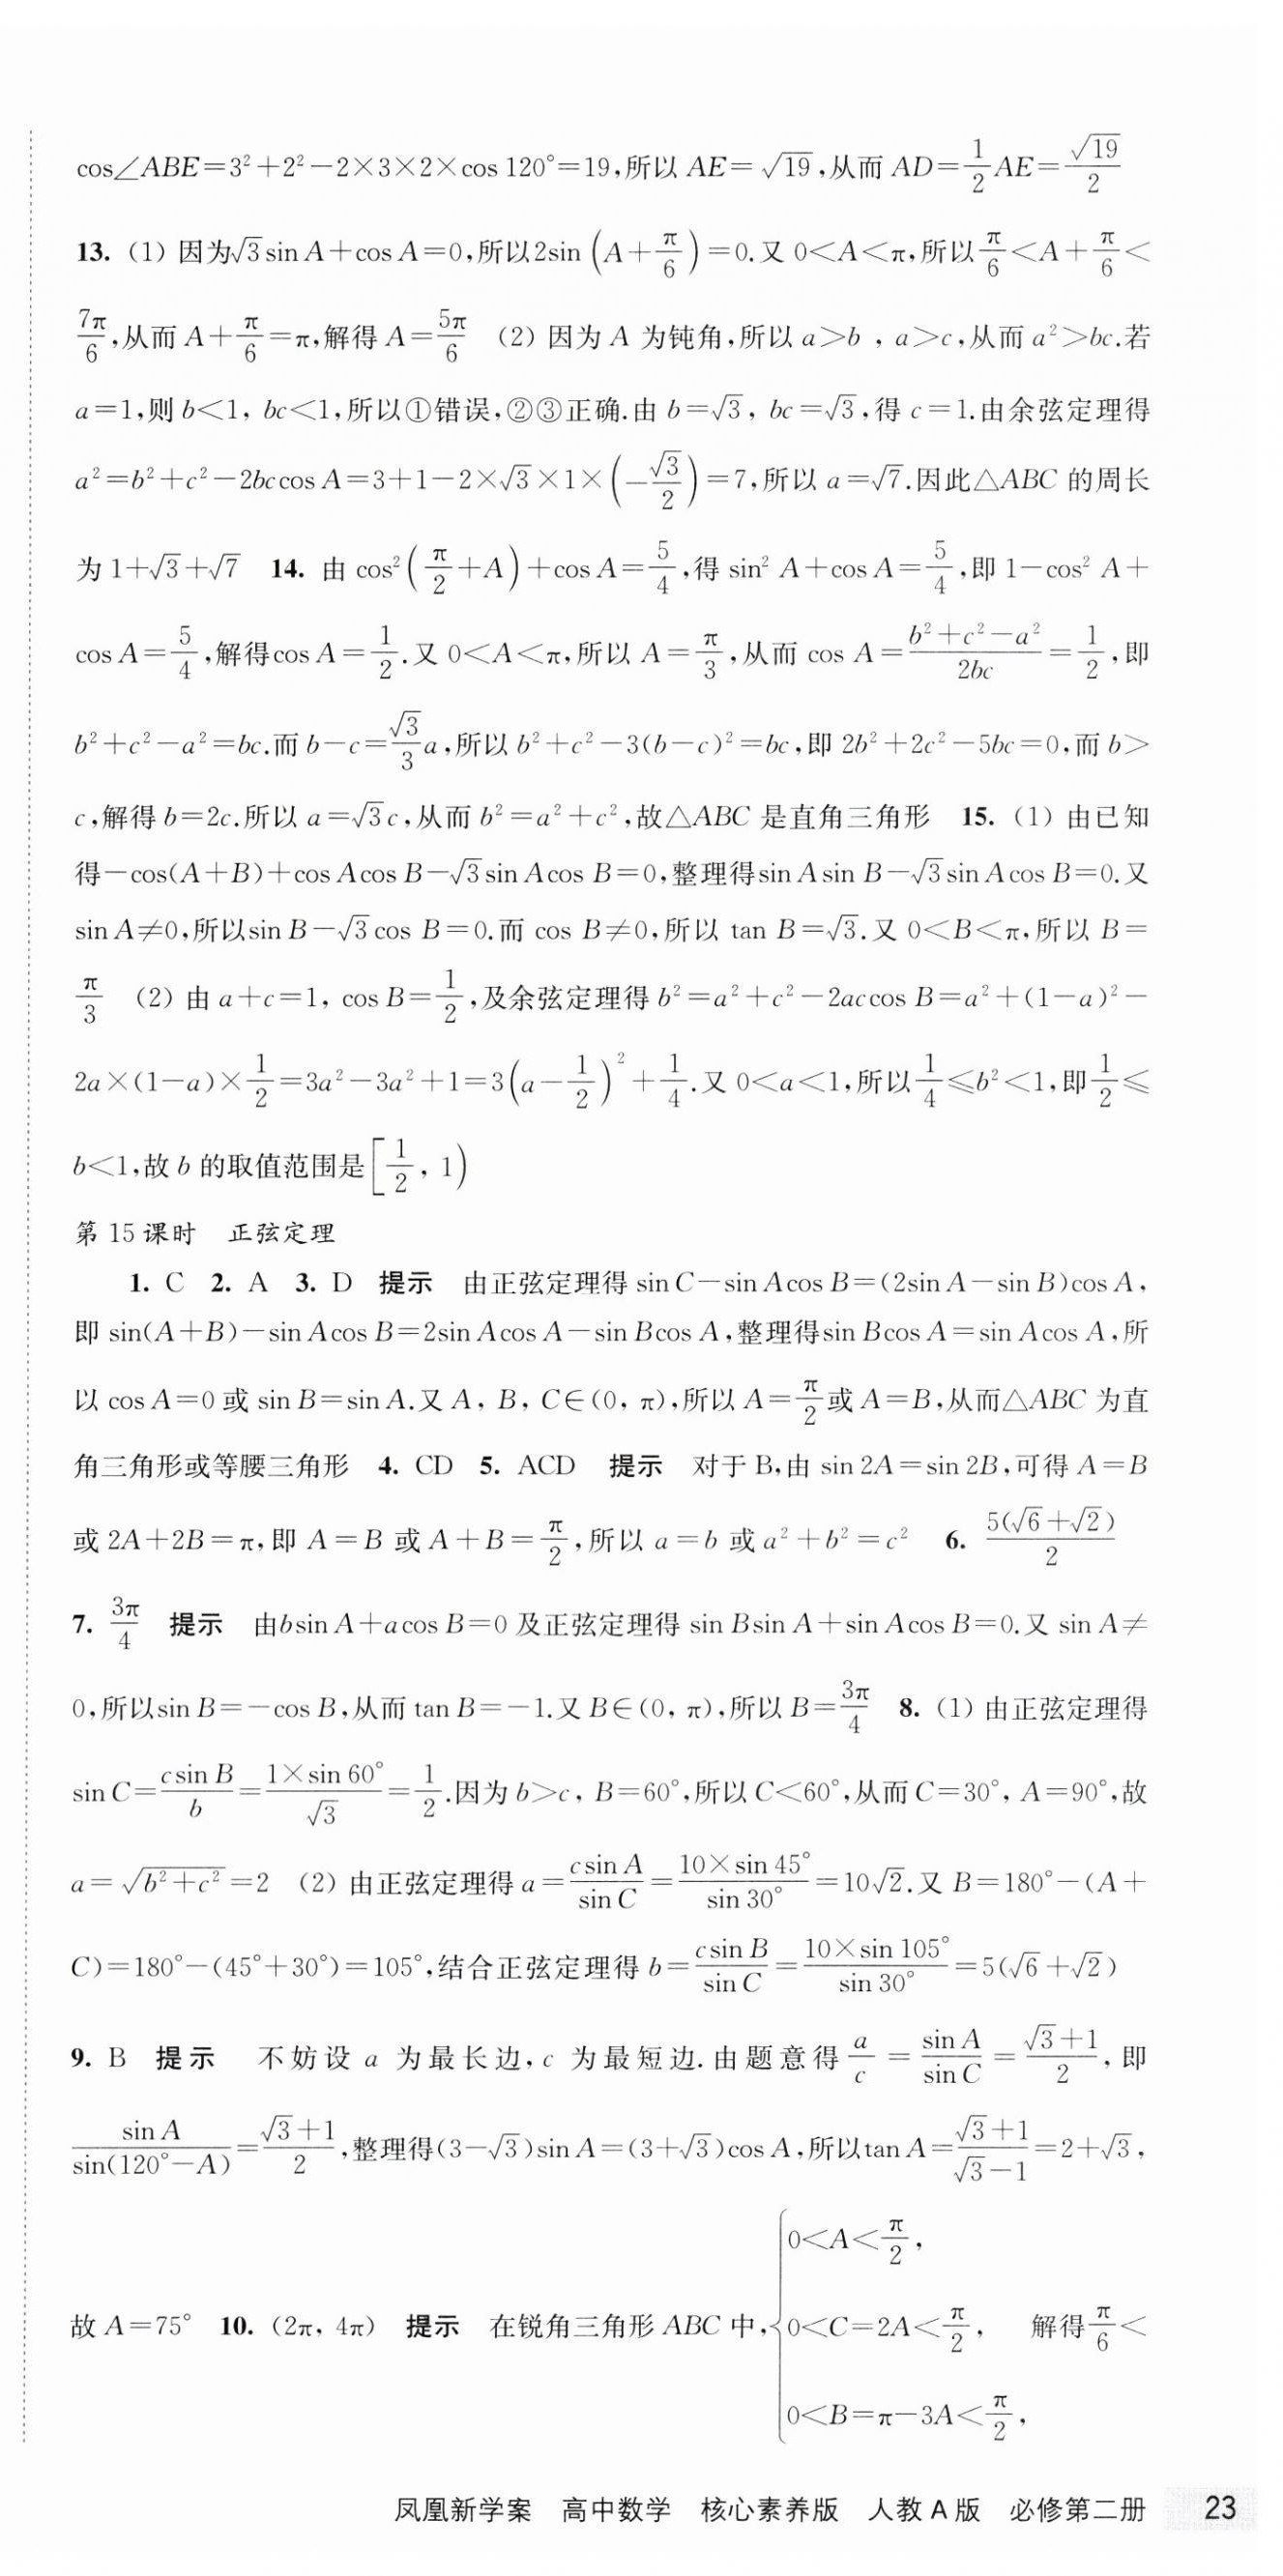 cos∠ABE=3²+2²-2×3×2×cos 120°=19,所以 AE=√19,从而 AD=1/2 AE=√19/2
13. (1) 因为√3 sin A+cos A=0,所以2sin(A+π/6)=0.又 0<A<π,所以π/6<A+π/6<
7π/6,从而 A+π/6=π,解得 A=5π/6 (2) 因为 A 为钝角,所以 a>b , a>c,从而 a²>bc.若
a=1,则 b<1, bc<1,所以①错误,②③正确.由 b=√3, bc=√3,得 c=1.由余弦定理得
a²=b²+c²-2bccos A=3+1-2×√3×1×(-√3/2)=7,所以 a=√7.因此△ABC 的周长
为 1+√3+√7 14. 由 cos²(π/2+A)+cos A=5/4,得 sin² A+cos A=5/4,即 1-cos² A+
cos A=5/4,解得cos A=1/2.又 0<A<π,所以 A=π/3,从而 cos A=(b²+c²-a²)/2bc=1/2,即
b²+c²-a²=bc.而 b-c=√3/3 a,所以 b²+c²-3(b-c)²=bc,即 2b²+2c²-5bc=0,而 b>
c,解得 b=2c.所以 a=√3c,从而 b²=a²+c²,故△ABC 是直角三角形 15. (1) 由已知
得-cos(A+B)+cos Acos B-√3 sin Acos B=0,整理得sin Asin B-√3 sin Acos B=0.又
sin A≠0,所以sin B-√3 cos B=0.而 cos B≠0,所以 tan B=√3.又 0<B<π,所以 B=
π/3 (2) 由 a+c=1, cos B=1/2,及余弦定理得 b²=a²+c²-2accos B=a²+(1-a)²-
2a×(1-a)×1/2=3a²-3a²+1=3(a-1/2)²+1/4.又 0<a<1,所以1/4≤b²<1,即1/2≤
b<1,故 b 的取值范围是[1/2, 1)
第 15 课时 正弦定理
1. C 2. A 3. D 提示 由正弦定理得 sin C-sin Acos B=(2sin A-sin B)cos A,
即 sin(A+B)-sin Acos B=2sin Acos A-sin Bcos A,整理得sin Bcos A=sin Acos A,所
以 cos A=0 或 sin B=sin A.又 A, B, C∈(0, π),所以 A=π/2或 A=B,从而△ABC 为直
角三角形或等腰三角形 4. CD 5. ACD 提示 对于 B,由 sin 2A=sin 2B,可得 A=B
或 2A+2B=π,即 A=B 或 A+B=π/2,所以 a=b 或 a²+b²=c² 6. 5(√6+√2)/2
7. 3π/4 提示 由bsin A+acos B=0 及正弦定理得 sin Bsin A+sin Acos B=0.又 sin A≠
0,所以sin B=-cos B,从而 tan B=-1.又 B∈(0, π),所以 B=3π/4 8. (1) 由正弦定理得
sin C=csin B/b=1×sin 60°/√3=1/2.因为 b>c, B=60°,所以 C<60°,从而 C=30°, A=90°,故
a=√(b²+c²)=2 (2) 由正弦定理得 a=csin A/sin C=10×sin 45°/sin 30°=10√2.又 B=180°-(A+
C)=180°-(45°+30°)=105°,结合正弦定理得 b=csin B/sin C=10×sin 105°/sin 30°=5(√6+√2)
9. B 提示 不妨设 a 为最长边,c 为最短边.由题意得a/c=sin A/sin C=(√3+1)/2,即
sin A/sin(120°-A)=(√3+1)/2,整理得(3-√3)sin A=(3+√3)cos A,所以tan A=(√3+1)/(√3-1)=2+√3,
故 A=75° 10. (2π, 4π) 提示 在锐角三角形 ABC 中,{0<A<π/2, 0<C=2A<π/2, 0<B=π-3A<π/2, 解得π/6<
凤凰新学案 高中数学 核心素养版 人教 A 版 必修第二册 23